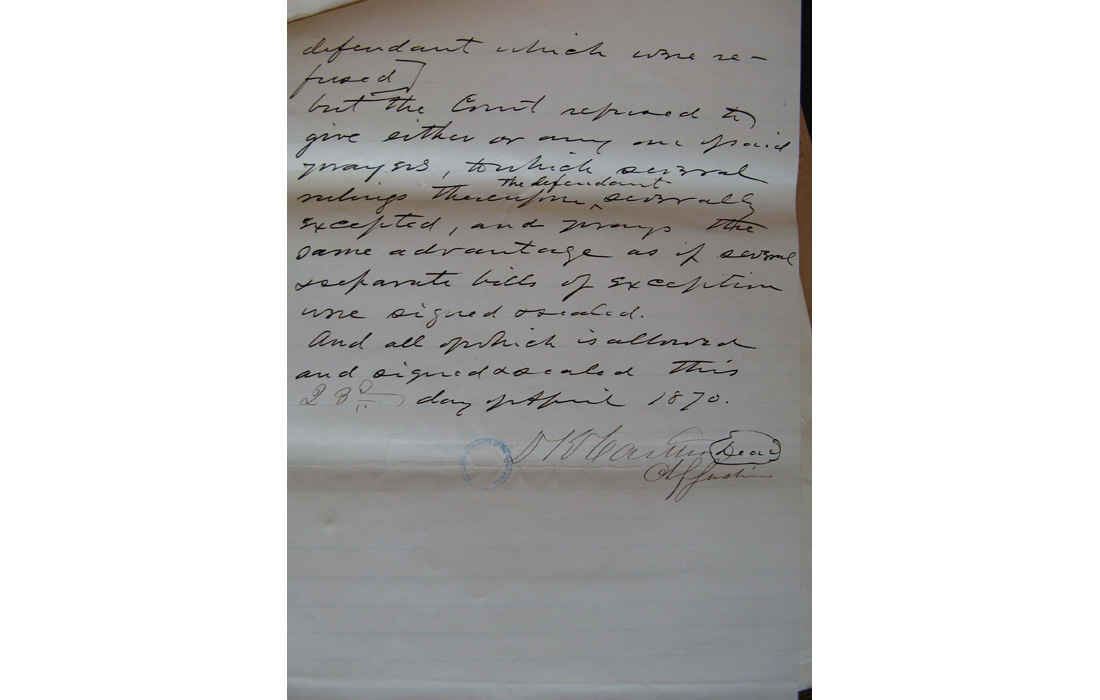 defendant which were re-
fused]
but the Court refused to
give either or any one of said
prayers, to which several
rulings thereupon the defendant severally
excepted, and prays the
same advantage as if several
& separate bills of exception
were signed & sealed.
And all of which is allowed
and signed & sealed this
23d day of April 1870.
D K Cartter Seal
Ch Justice